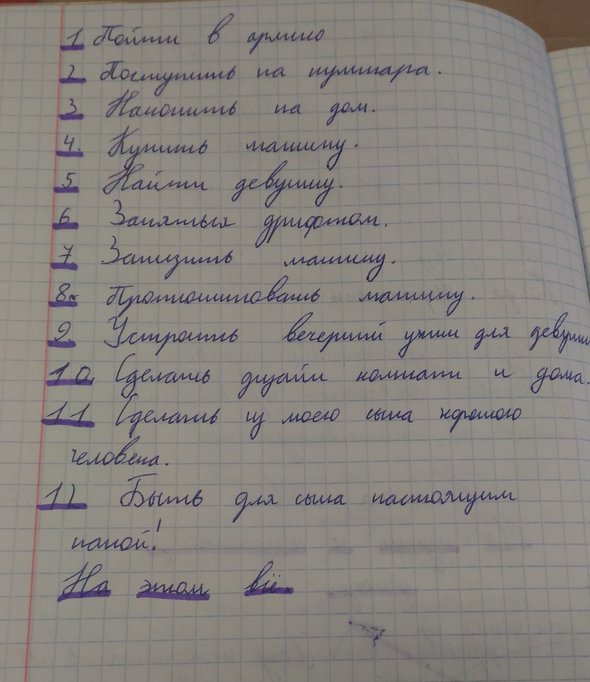 1 Пойти в армию
2. Поступить на
3. Накопить на дом.
4. Купить машину.
5 Найти девушку.
6 Заняться дрифтом.
7. Занизить машину.
8. машину.
9 Устроить вечерний ужин для девушки
10 Сделать дизайн комнати и дома.
11 Сделать из моего сына хорошого
человека.
12 Быть для сына настоящим
папой!
На этом всё.